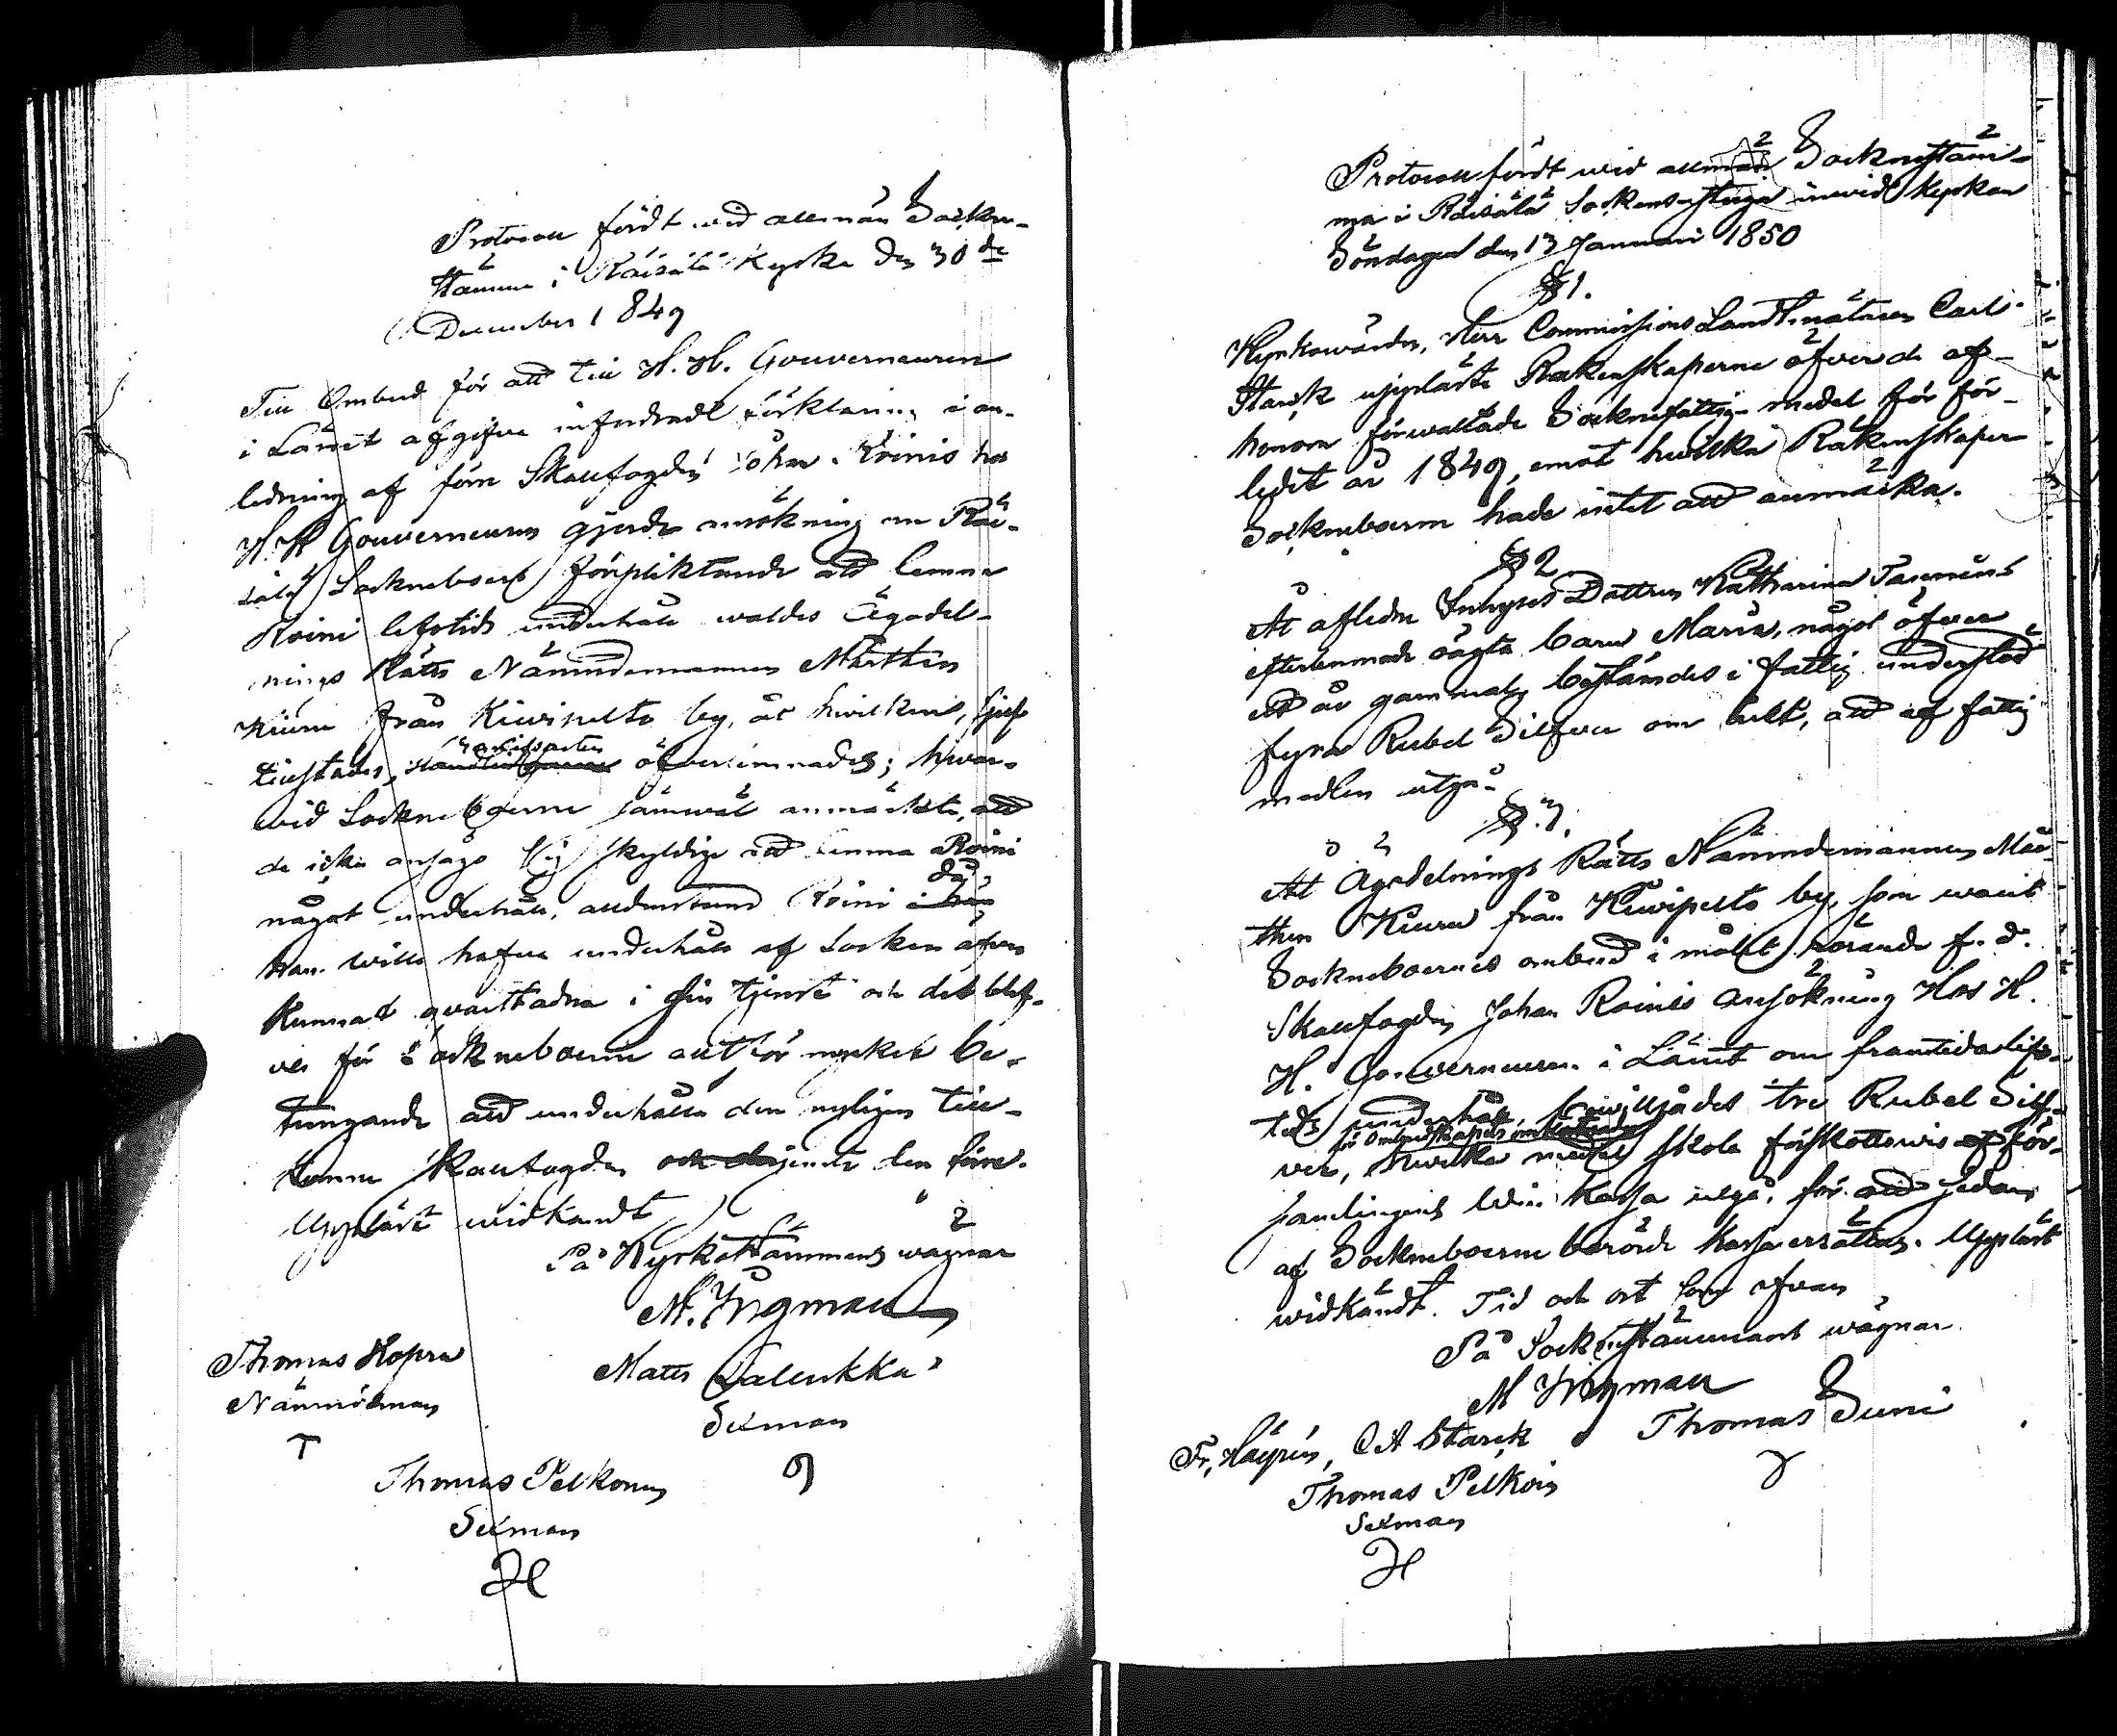 Protocoll fördt wid allmän Sockne-
stämma i Räisälä Kyrka den 30de
December 1849
Till Ombud för att till H. H. Gouverneuren
i Länet afgifva infordrad förklaring i an-
ledning af förre Skallfogden Johan Roinis hos
H. H. Gouverneuren gjorde ansökning om Räi-
sälä Sockneboers förpliktande att lemna
Roini lifstids underhåll waldes Ägodel-
nings Rätts Nämndemannen Mårthen
Kiuru från Kiwipelto by, åt hvilken,
tillstädes, öfverlemnades; hwar-
wid Sockneboerne jämwäl anmärkte, att
de icke ansågo sig skyldige att lemna Roini
något underhåll, alldenstund Roini då
han wille hafva underhåll af Socken äfven
kunnat qvarstadna i sin tjenst och det blef-
ve för Socknebоerne alltför mycket be-
tungande att underhålla den nyligen till-
komne Skallfogden och jemte den förre.
Uppläst widkändt
På Kyrkostämmans wägnar
M. Ingman
Thomas Hopra
Nämndeman
Matts Lalukka
Sexman
Thomas Pelkonen
Sexman
Protocoll fördt wid allmän Socknestäm-
ma i Räisälä Sockenstuga inwid Kyrkan
Söndagen den 13 Januari 1850
§ 1.
Kyrkowärden, Herr Commissions Landtmätaren Carl
Starck uppläste Räkenskaperne öfver de af
honom förwaltade Socknefattig-medel för för-
ledit år 1849, emot hwilka Räkenskaper
Socknеboerne hade intet att anmärka.
§ 2
Åt aflidne Inhyses Dottren Katharina
efterlemnade oägta barn Maria, något öfver
ett år gammalt, bestämdes i fattig understöd
fyra Rubel Silfver om året, att af fattig
medlen utgå.
§ 3.
Åt Ägodelnings Rätts Nämndemannen Mår-
then Kiuru från Kiwipelto by, som warit
Socknebоernes ombud i målet rörande f. d.
Skallfogden Johan Roinis ansökning hos H.
H. Gouverneuren i Länet om framtida lifs-
tids underhåll, bewiljades tre Rubel Silf-
ver, hwilka skola förskottswis af för-
samlingens kassa utgå, för att sedan
af Socknebоerne berörde kassa ersättas. Uppläst
widkändt. Tid och ort som ofvan
På Socknestämmans wägnar
M Ingman
Fr. Häyrén, C A Starck Thomas Suni
Thomas Pelkoin
Sexman